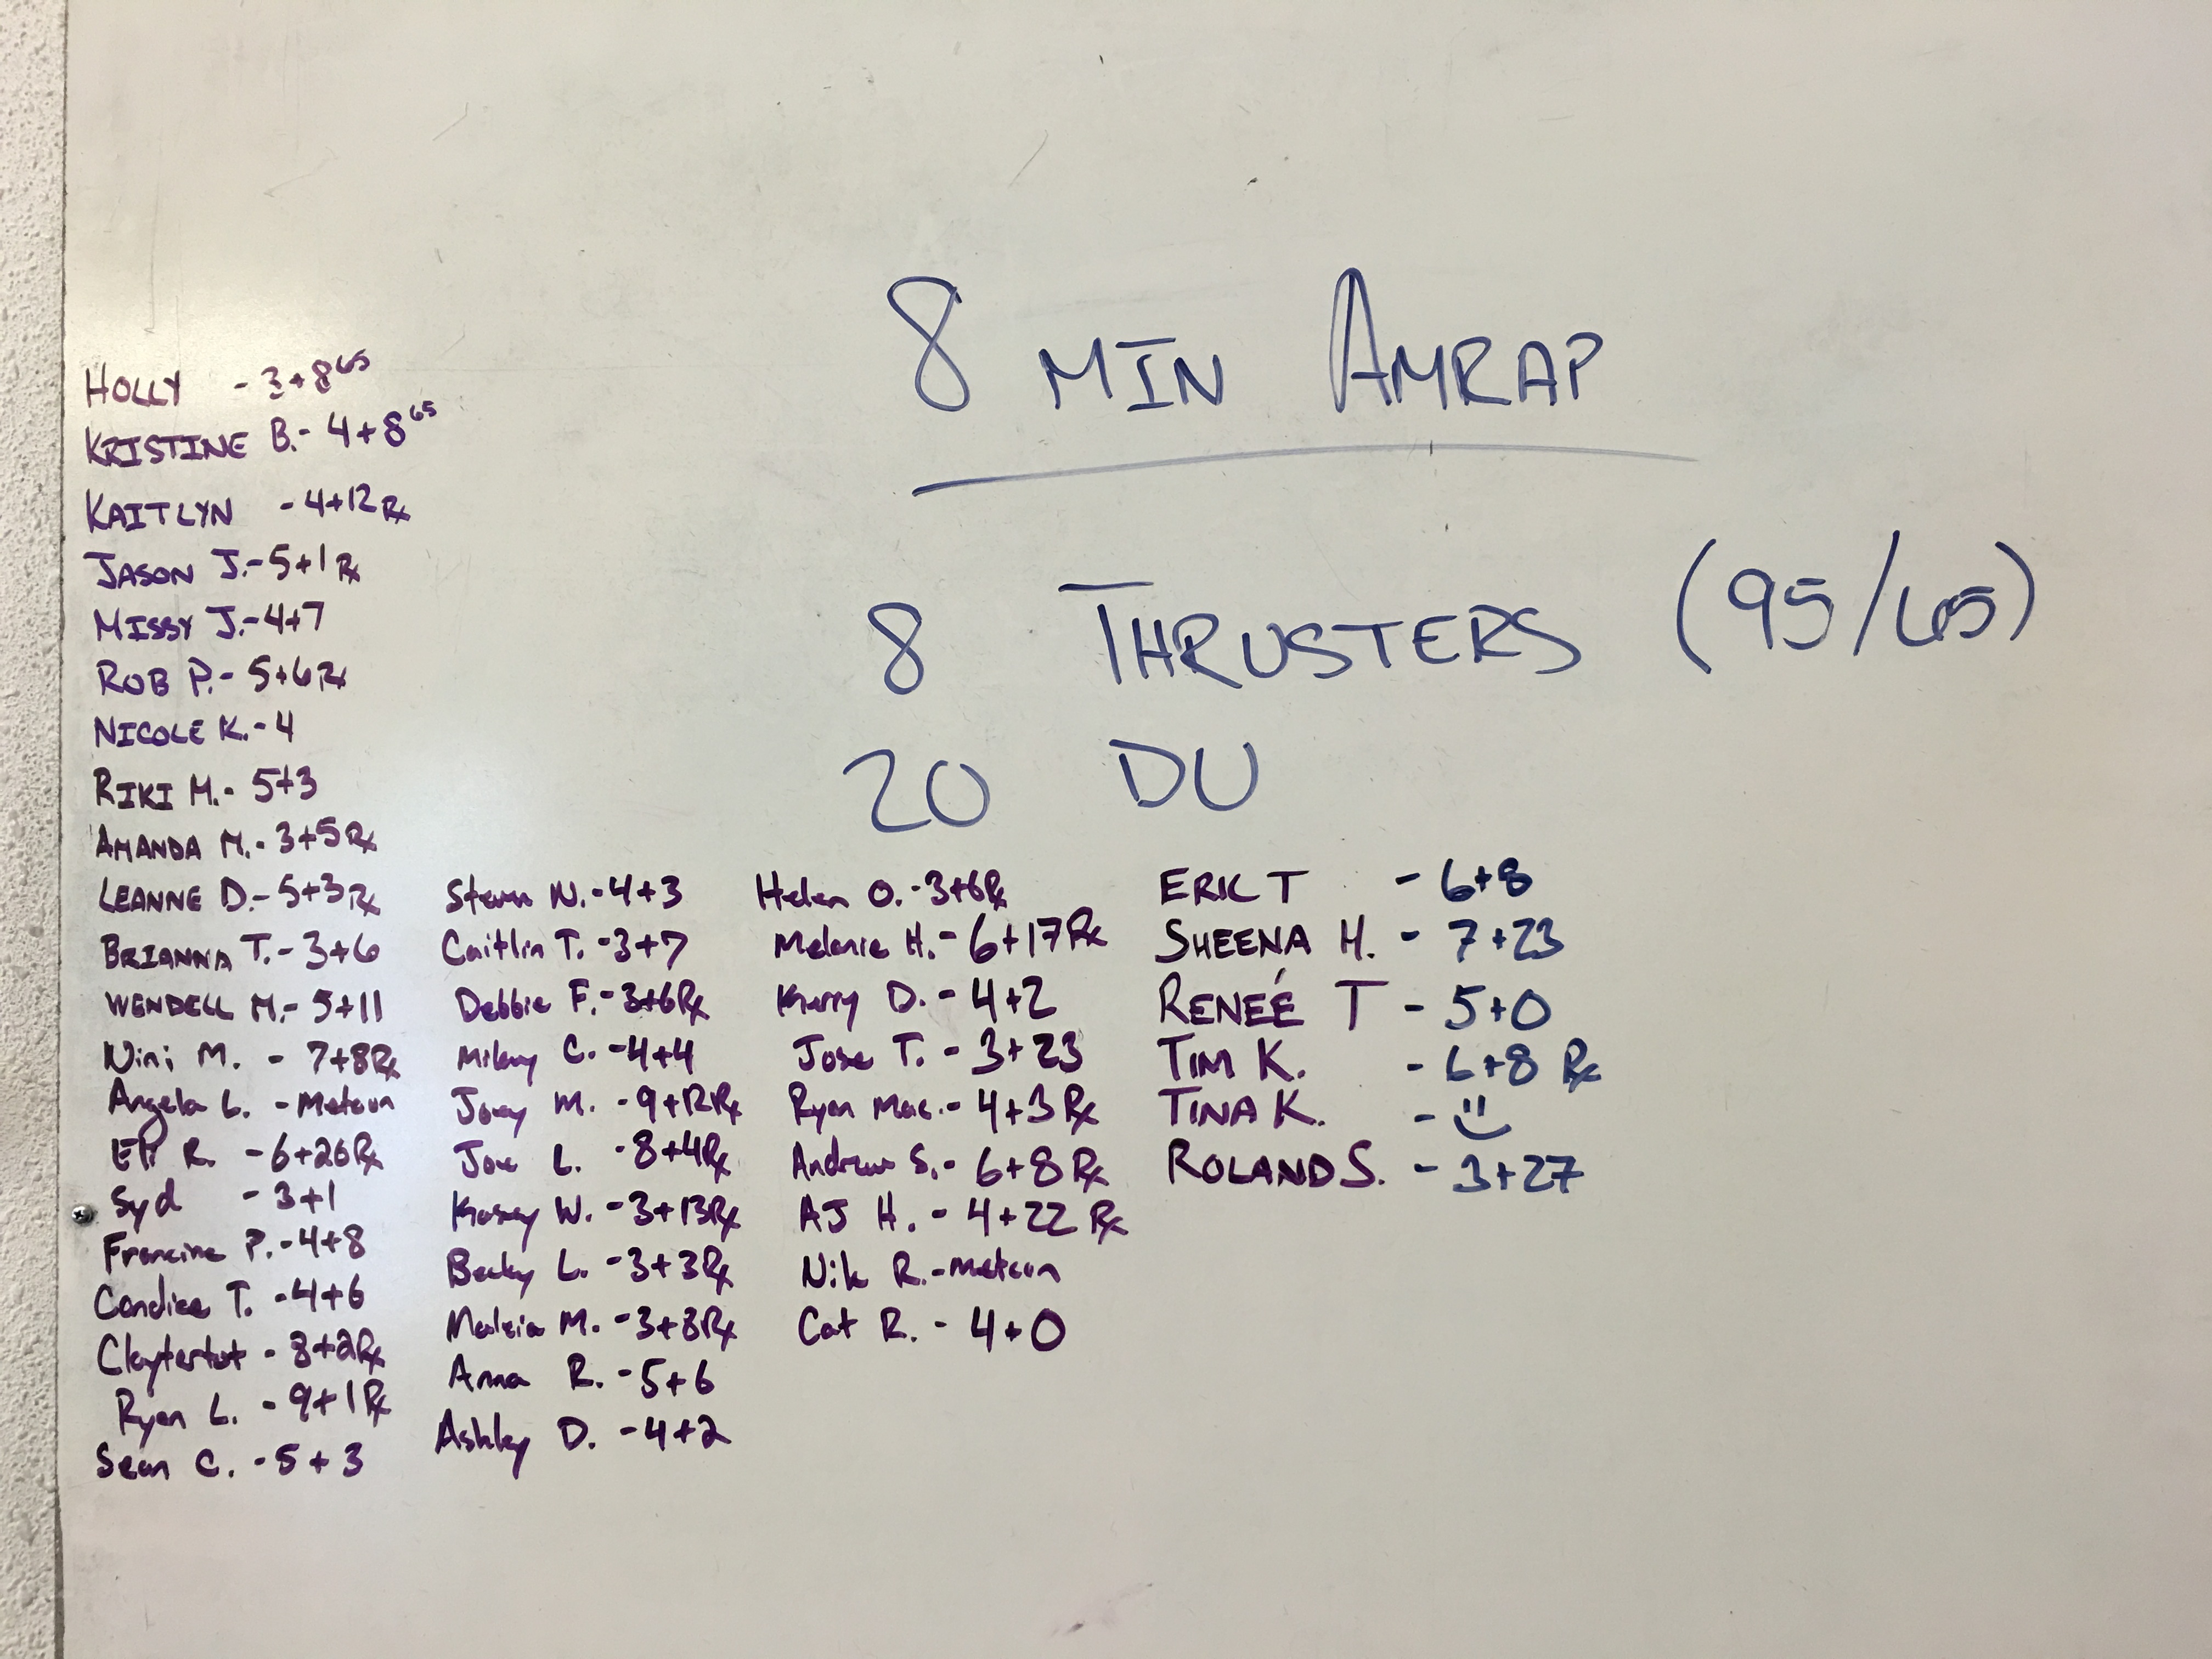 8 MIN AMRAP
8 THRUSTERS (95/65)
20 DU
HOLLY - 3+8 65
KRISTINE B. - 4+8 65
KAITLYN - 4+12 Rx
JASON J. - 5+1 Rx
MISSY J. - 4+7
ROB P. - 5+6 Rx
NICOLE K. - 4
RIKI M. - 5+3
AMANDA M. - 3+5 Rx
LEANNE D. - 5+3 Rx
BRIANNA T. - 3+6
WENDELL M. - 5+11
Nini M. - 7+8 Rx
Angela L. - Metcon
Eli R. - 6+26 Rx
Syd - 3+1
Francine P. - 4+8
Candice T. - 4+6
Claytertot - 8+2 Rx
Ryan L. - 9+1 Rx
Sean C. - 5+3
Steven N. - 4+3
Caitlin T. - 3+7
Debbie F. - 3+6 Rx
C. - 4+4
Joey M. - 9+12 Rx
Joe L. - 8+4 Rx
Kasey W. - 3+13 Rx
Becky L. - 3+3 Rx
M. - 3+8 Rx
Anna R. - 5+6
Ashley D. - 4+2
Helen O. - 3+6 Rx
Melanie H. - 6+17 Rx
Kerry D. - 4+2
Jose T. - 3+23
Ryan Mac. - 4+3 Rx
Andrew S. - 6+8 Rx
AJ H. - 4+22 Rx
Nik R. - Metcon
Cat R. - 4+0
ERIC T - 6+8
SHEENA H. - 7+23
RENEÉ T - 5+0
TIM K. - 6+8 Rx
TINA K. -
ROLAND S. - 3+27